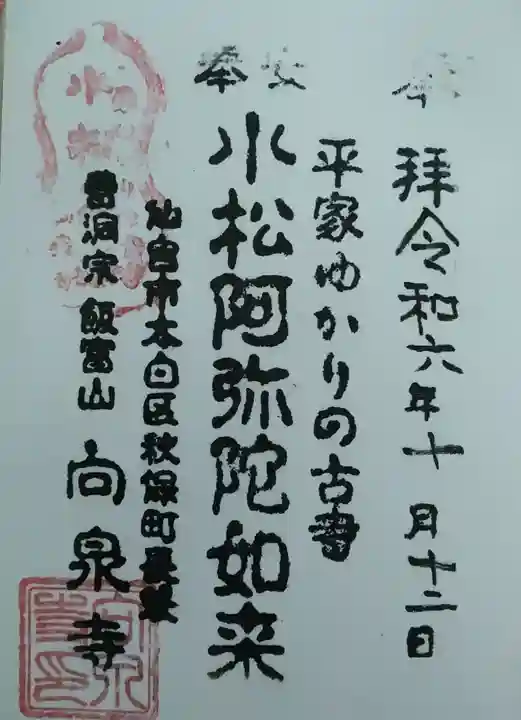 奉拝 令和六年十月十二日
平家ゆかりの古書
奉安
小松阿弥陀如来
仙台市太白区秋保町長袋
曹洞宗 飯富山 向泉寺